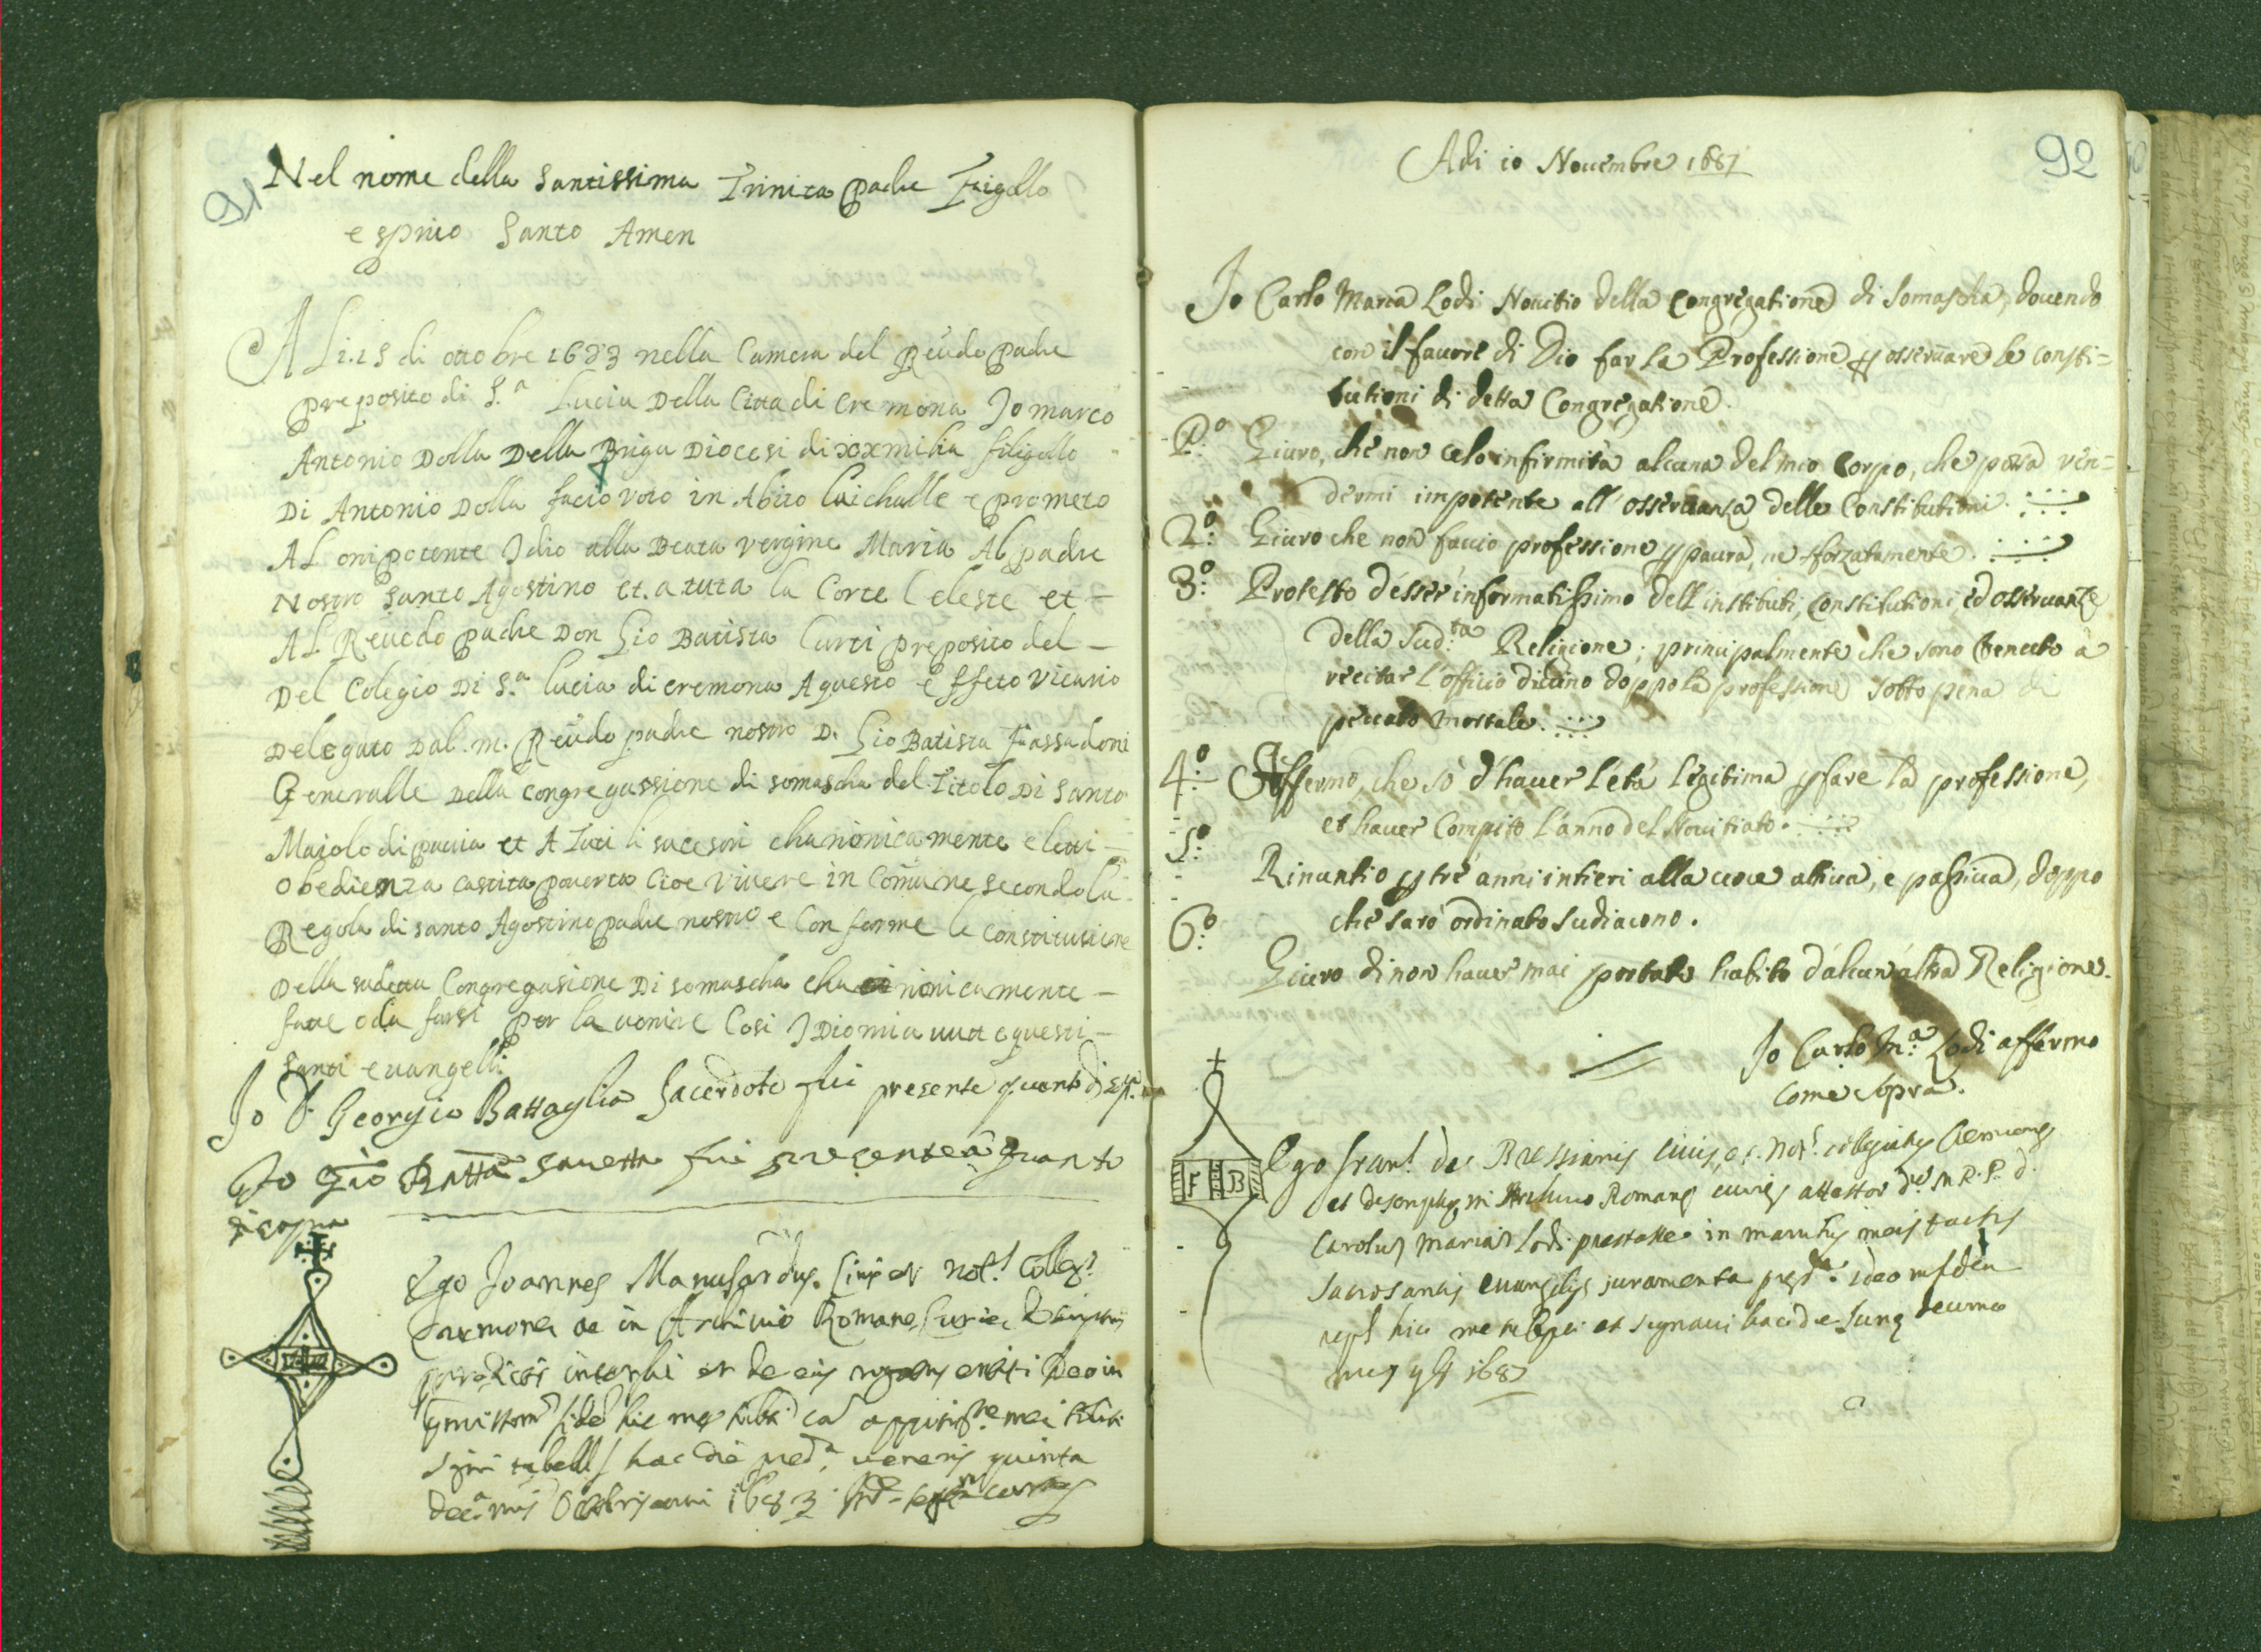 91
Nel nome della santissima Trinita padre Figollo
e spirito Santo Amen
A Li.15 di ottobre 1683 nella Camera del Reudo padre
preposito di S.a Lucia Della Citta di Cremona Jo marco
Antonio Dolla Della Briga Diocesi di xxmilia filigollo
Di Antonio Dolla facio voto in Abito laichalle e prometo
AL onipotente Idio alla Beata vergine Maria Al padre
Nostro Santo Agostino et.a tuta la Corte Celeste et -
AL Reuedo padre Don Gio Batista Curti preposito del -
Del Colegio Di S.a lucia di cremona A questo effeto vicario
Delegato Dal .m. Reudo padre nostro D. Gio Batista
Generalle Della congregassione di somascha del Titolo Di Santo
Maiolo di pauia et A Tuti li sucesori chanonicamente eletti -
obedienza castita pouerta Cioe vivere in Comune secondo la
Regola di santo Agostino padre nostro e Conforme le constitusione
Della sudetta Congregasione Di somascha cha nonicamente -
fatte o da farsi per la uenire Cosi J Dio mia uuti e questi -
Santi euangelli
Jo D. Georgio Battaglia Sacerdote fui presente quanto di
Jo Gio Batta fui presente a quanto
di copra
Ego Joannes Manusardus Collegt
Cremonę ac in Archiuio Romanę Curię
hac die pred.a ueneris quinta
Octobris anni 1683
92
Adi 10 Nouembre 1687
Jo Carlo Maria Lodi Nouitio della Congregatione di Somascha, douendo
con il fauore di Dio far la Professione p osseruare le consti=
tutioni di detta Congregatione.
P.o Giuro, che non celo infirmità alcuna del mio Corpo, che possa ren=
dermi impotente all' osseruanza delle Constitutioni.
2.o Giuro che non faccio professione p paura, ne sforzatamente.
3.o Protesto d'esser informatissimo dell instituti, Constitutioni, ed osseruanze
della Sud.ta Religione; principalmente che sono tenuto à
recitar l'officio diuino doppo la professione sotto pena di
peccato mortale.
4.o Affermo, che sò d'hauer l'età legitima p fare la professione,
et hauer Compito l'anno del Nouitiato.
5.o Rinuntio p tre anni intieri alla uoce attiua, e passiua, doppo
che sarò ordinato Sudiacono.
6.o Giuro di non hauer mai portato habito d'alcun'altra Religione.
Jo Carlo M.a Lodi affermo
Come sopra.
F B
Ego
et Archiuio Romanę curię attestor M.R.P. d.
Carolus Maria Lodi prestasse in manibus meis tactis
sacrosantis euangelijs iuramenta
et signaui hac die Lunę decimo
1687